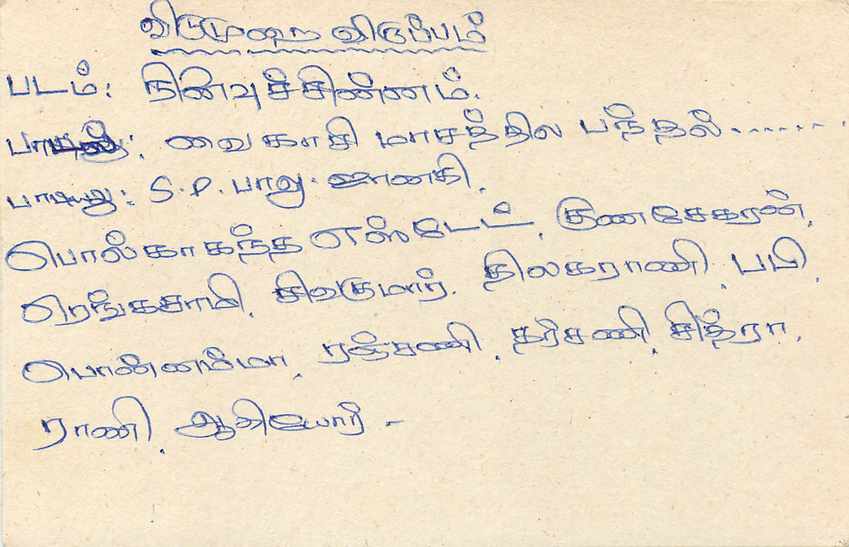 விடுமுறை விருப்பம்
படம்: நினைவுச்சின்னம்.
பாடல்: வைகாசி மாசத்தில பந்தல் ........
பாடியது: S.P. பாலு. ஜானகி.
பொல்காகந்த எஸ்டேட், குணசேகரன்,
ரெங்கசாமி, சிவகுமார். திலகராணி, பபி,
பொன்னம்மா, ரஞ்சணி, தர்சணி, சித்ரா,
ராணி, ஆகியோர் -